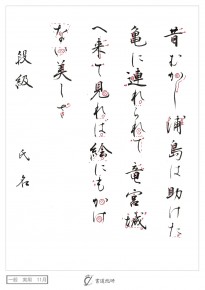 昔むかし浦島は助けた
亀に連れられて竜宮城
へ来て見れば絵にもかけ
ない美しさ
段級 氏名
一般 実用 11月 書道範峰